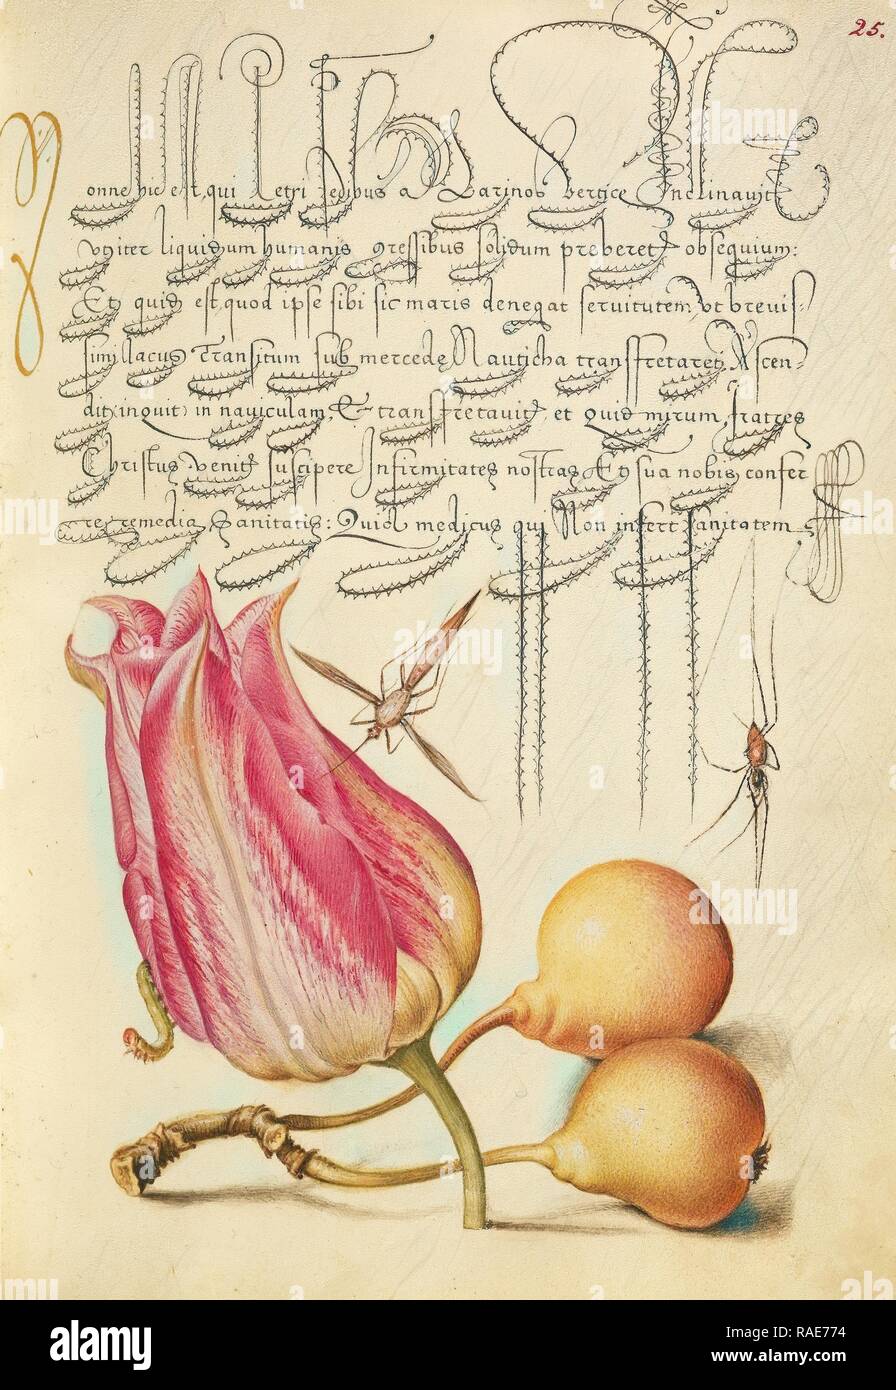 25.
Nonne hic est, qui Petri sequus a Marinos vertice Inclinavit
vt iter liquidum humanis gressibus solidum preberet obsequium:
Et quid est, quod ipse sibi sic maris denegat seruitutem, vt breuis-
simi lacus transitum sub mercede Nauticha transfretaret, Ascen-
dit (inquit) in nauiculam, & transfretauit, et quid mirum, fratres
Christus venit suscipere Infirmitates nostras Et sua nobis confer
re remedia Sanitatis: Quia medicus qui Non infert sanitatem
alamy
Image ID: RAE774
www.alamy.com